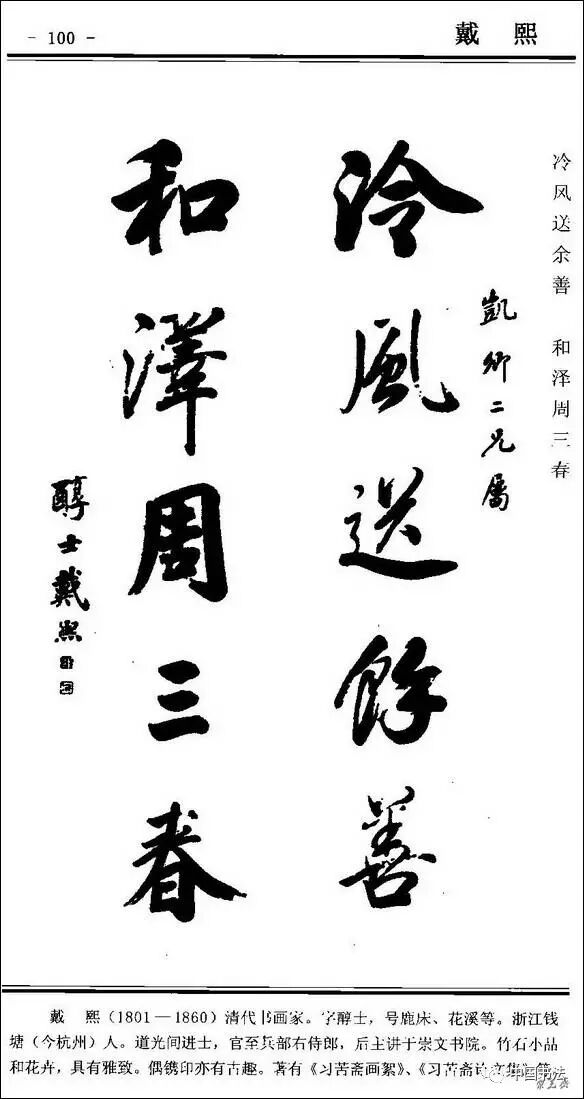 - 100 -
戴 熙
冷风送余善 和泽周三春
凯卿二兄属
泠風送餘善
和澤周三春
醇士戴熙
戴 熙（1801—1860）清代书画家。字醇士，号鹿床、花溪等。浙江钱
塘（今杭州）人。道光间进士，官至兵部右侍郎，后主讲于崇文书院。竹石小品
和花卉，具有雅致。偶镌印亦有古趣。著有《习苦斋画絮》、《习苦斋诗文集》等
中国书法